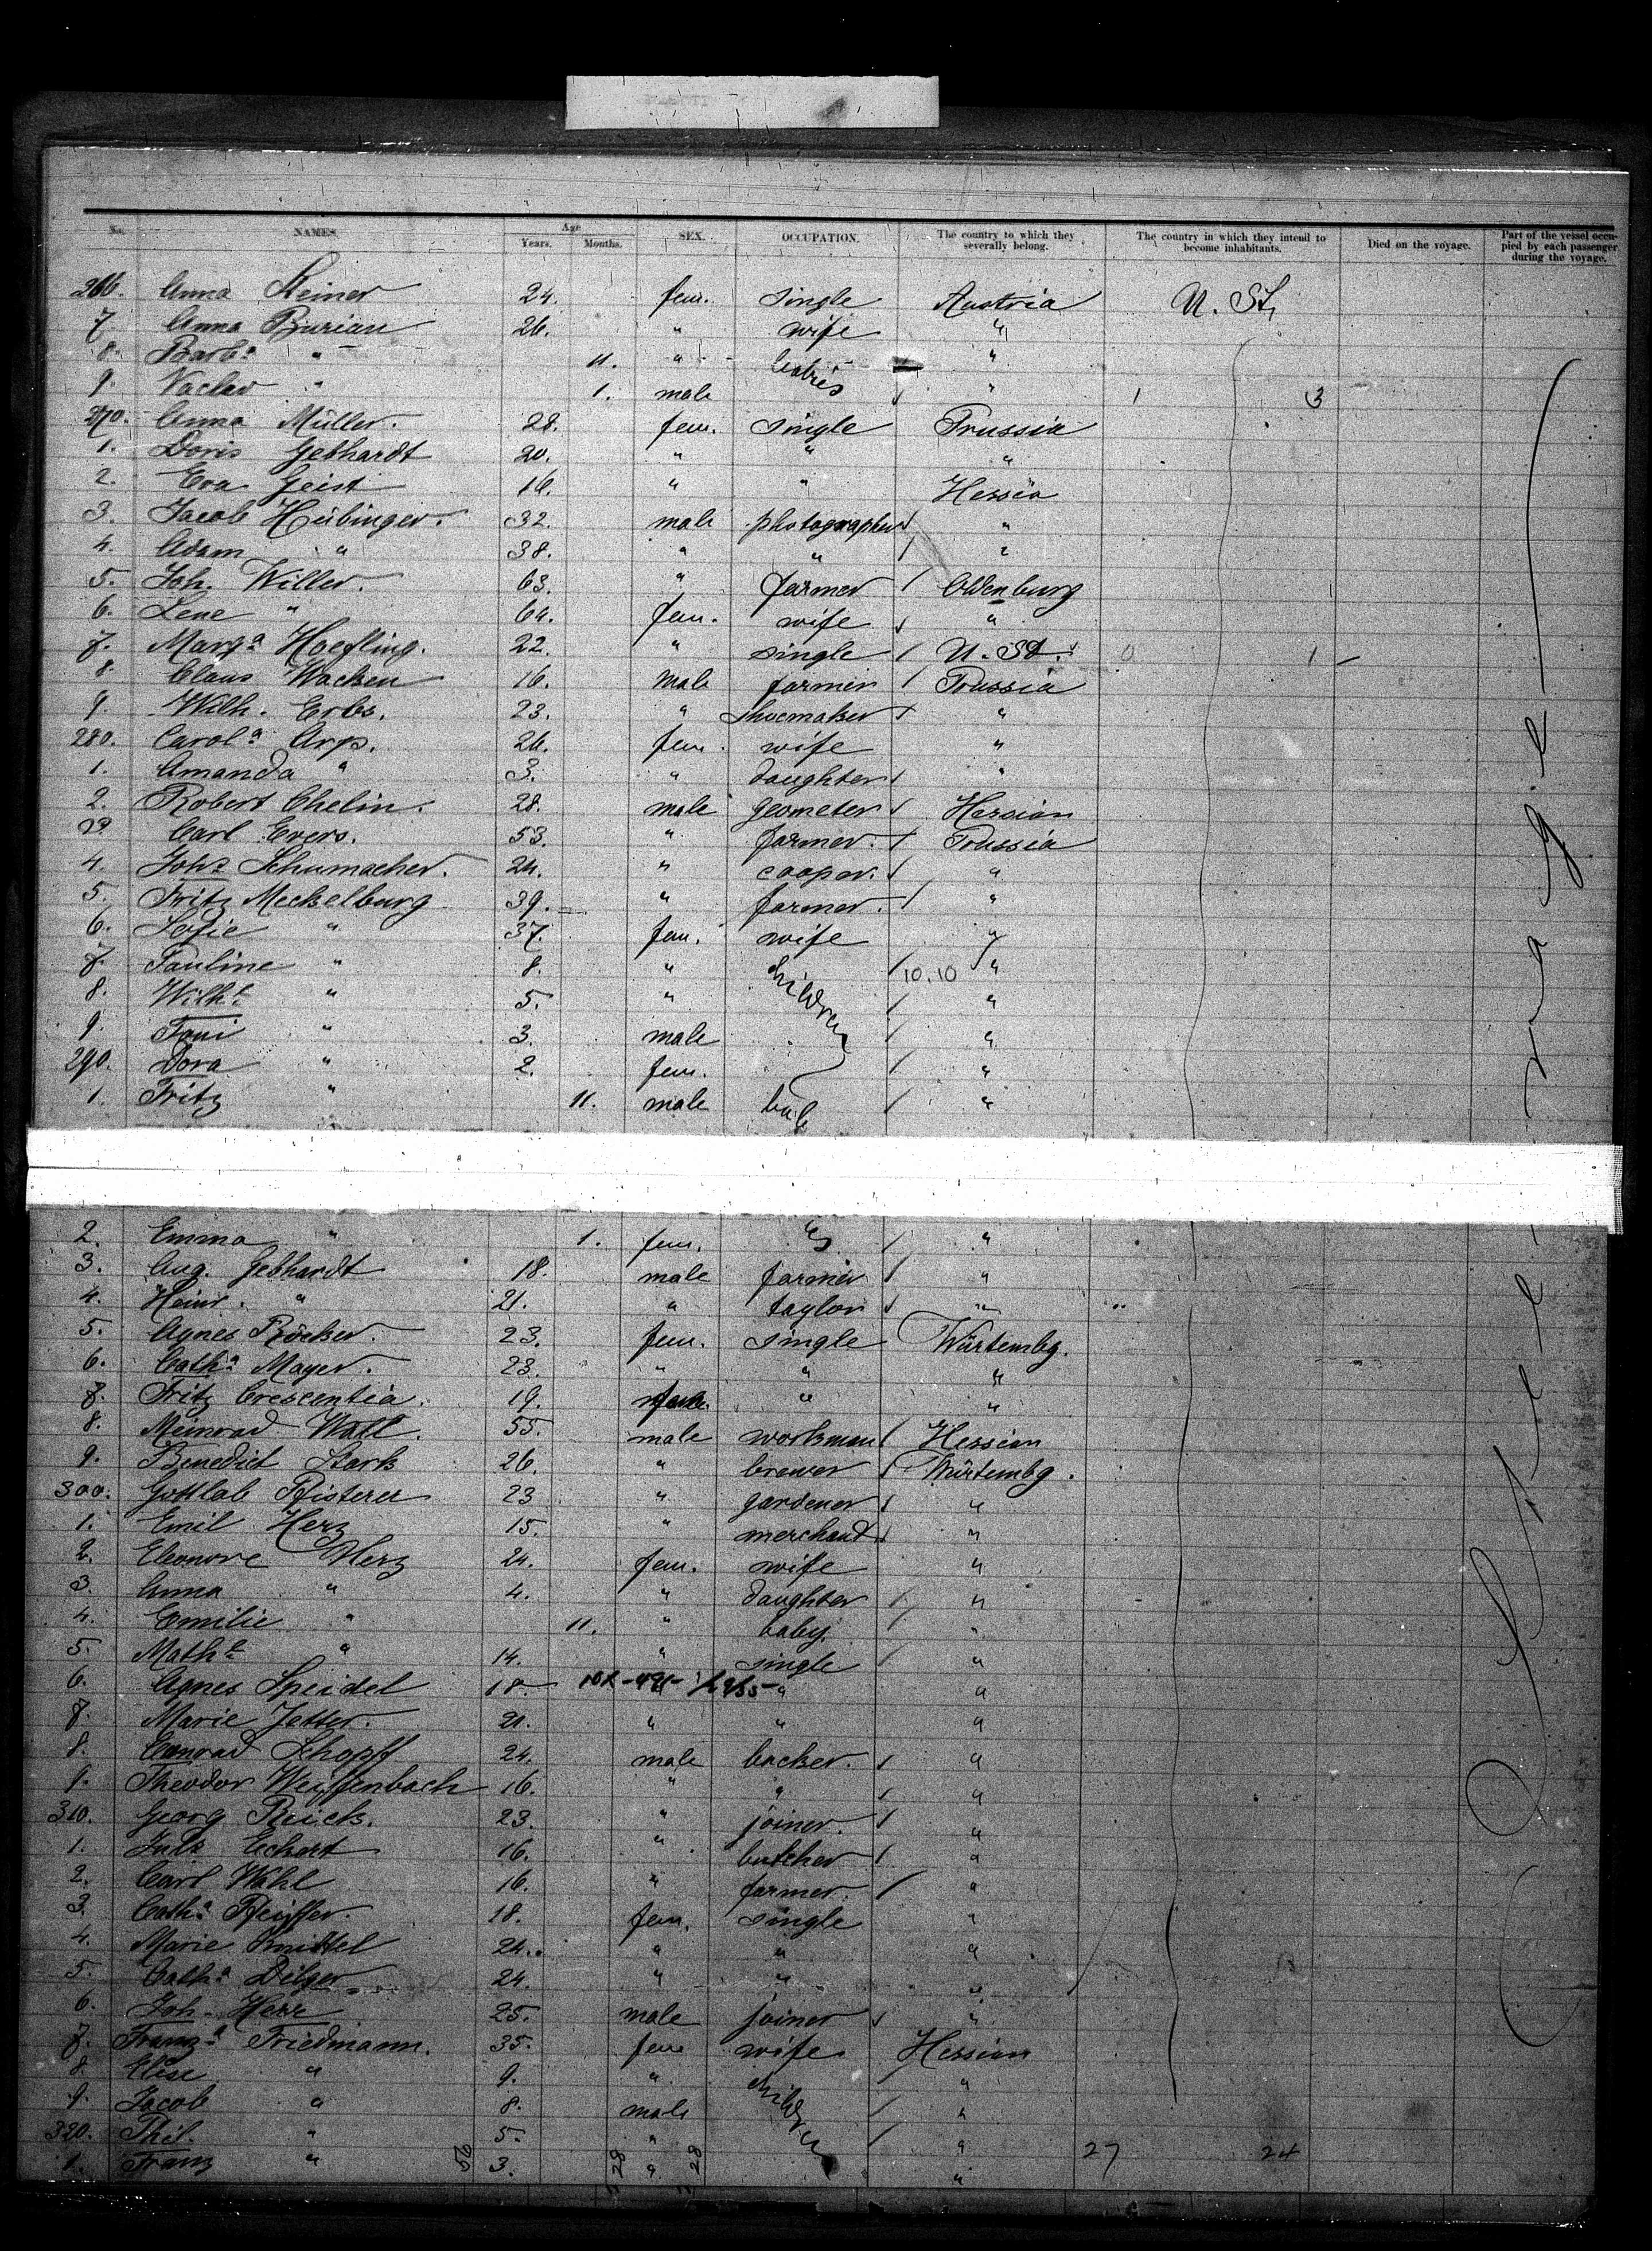 No. NAMES. Age Years. Months. SEX. OCCUPATION. The country to which they severally belong. The country in which they intend to become inhabitants. Died on the voyage. Part of the vessel occupied by each passenger during the voyage.
266. Anna Steiner 24. fem. single Austria U. St.
7. Anna Burian 26. " wife "
8. Barb.a " 11. " babies "
9. Vaclav " 1. male " 1 3
270. Anna Müller. 28. fem. single Prussia
1. Doris Gebhardt 20. " " "
2. Eva Geist 16. " " Hessia
3. Jacob Hübinger. 32. male photographer "
4. Adam " 38. " " "
5. Joh. Willer. 63. " farmer Oldenburg
6. Lene " 64. fem. wife "
7. Marg.a Hoefling. 22. " single U. St. 0 1
8. Claus Wacken 16. male farmer Prussia
9. Wilh. Erbs. 23. " shoemaker "
280. Carol.a Arp. 26. fem. wife "
1. Amanda " 3. " daughter "
2. Robert Chelin. 28. male geometer Hessian
3. Carl Evers. 53. " farmer. Prussia
4. Joh.s Schumacher. 24. " cooper. "
5. Fritz Meckelburg 39. " farmer. "
6. Sofie " 37. fem. wife "
7. Pauline " 8. " children 10.10 "
8. Wilh.e " 5. " "
9. Toni " 3. male "
290. Dora " 2. fem. "
1. Fritz " 11. male "
2. Emma " 1. fem. "
3. Aug. Gebhardt 18. male farmer "
4. Heinr. " 21. " taylor "
5. Agnes Röcker. 23. fem. single Würtembg.
6. Cath.a Mayer. 23. " " "
7. Fritz Crescentia. 19. " "
8. Meinrad Wall. 55. male workman Hessian
9. Benedict Stark 26. " brewer Würtembg.
300. Gottlob Pfisterer 23 " gardener "
1. Emil Herz 15. " merchand "
2. Eleonore Herz 24. fem. wife "
3. Anna " 4. " daughter "
4. Emilie " 11. " baby. "
5. Math.e " 14. " single "
6. Agnes Speidel 18. " "
7. Marie Jetter. 21. " " "
8. Conrad Schopff 24. male backer. "
9. Theodor Weiffenbach 16. " " "
310. Georg Reich. 23. " joiner. "
1. Jul.s Eckert 16. " butcher "
2. Carl Wahl 16. " farmer. "
3. Cath.a Pfeiffer. 18. fem. single "
4. Marie Knittel 24. " " "
5. Cath.a Dilger 24. " " "
6. Joh. Herr 25. male joiner "
7. Franz.a Friedmann. 35. fem wife Hessian
8. Elise " 9. " children "
9. Jacob " 8. male "
320. Phil. " 5. " " 27 24
1. Franz " 3. " "
56 28 28
Steerage